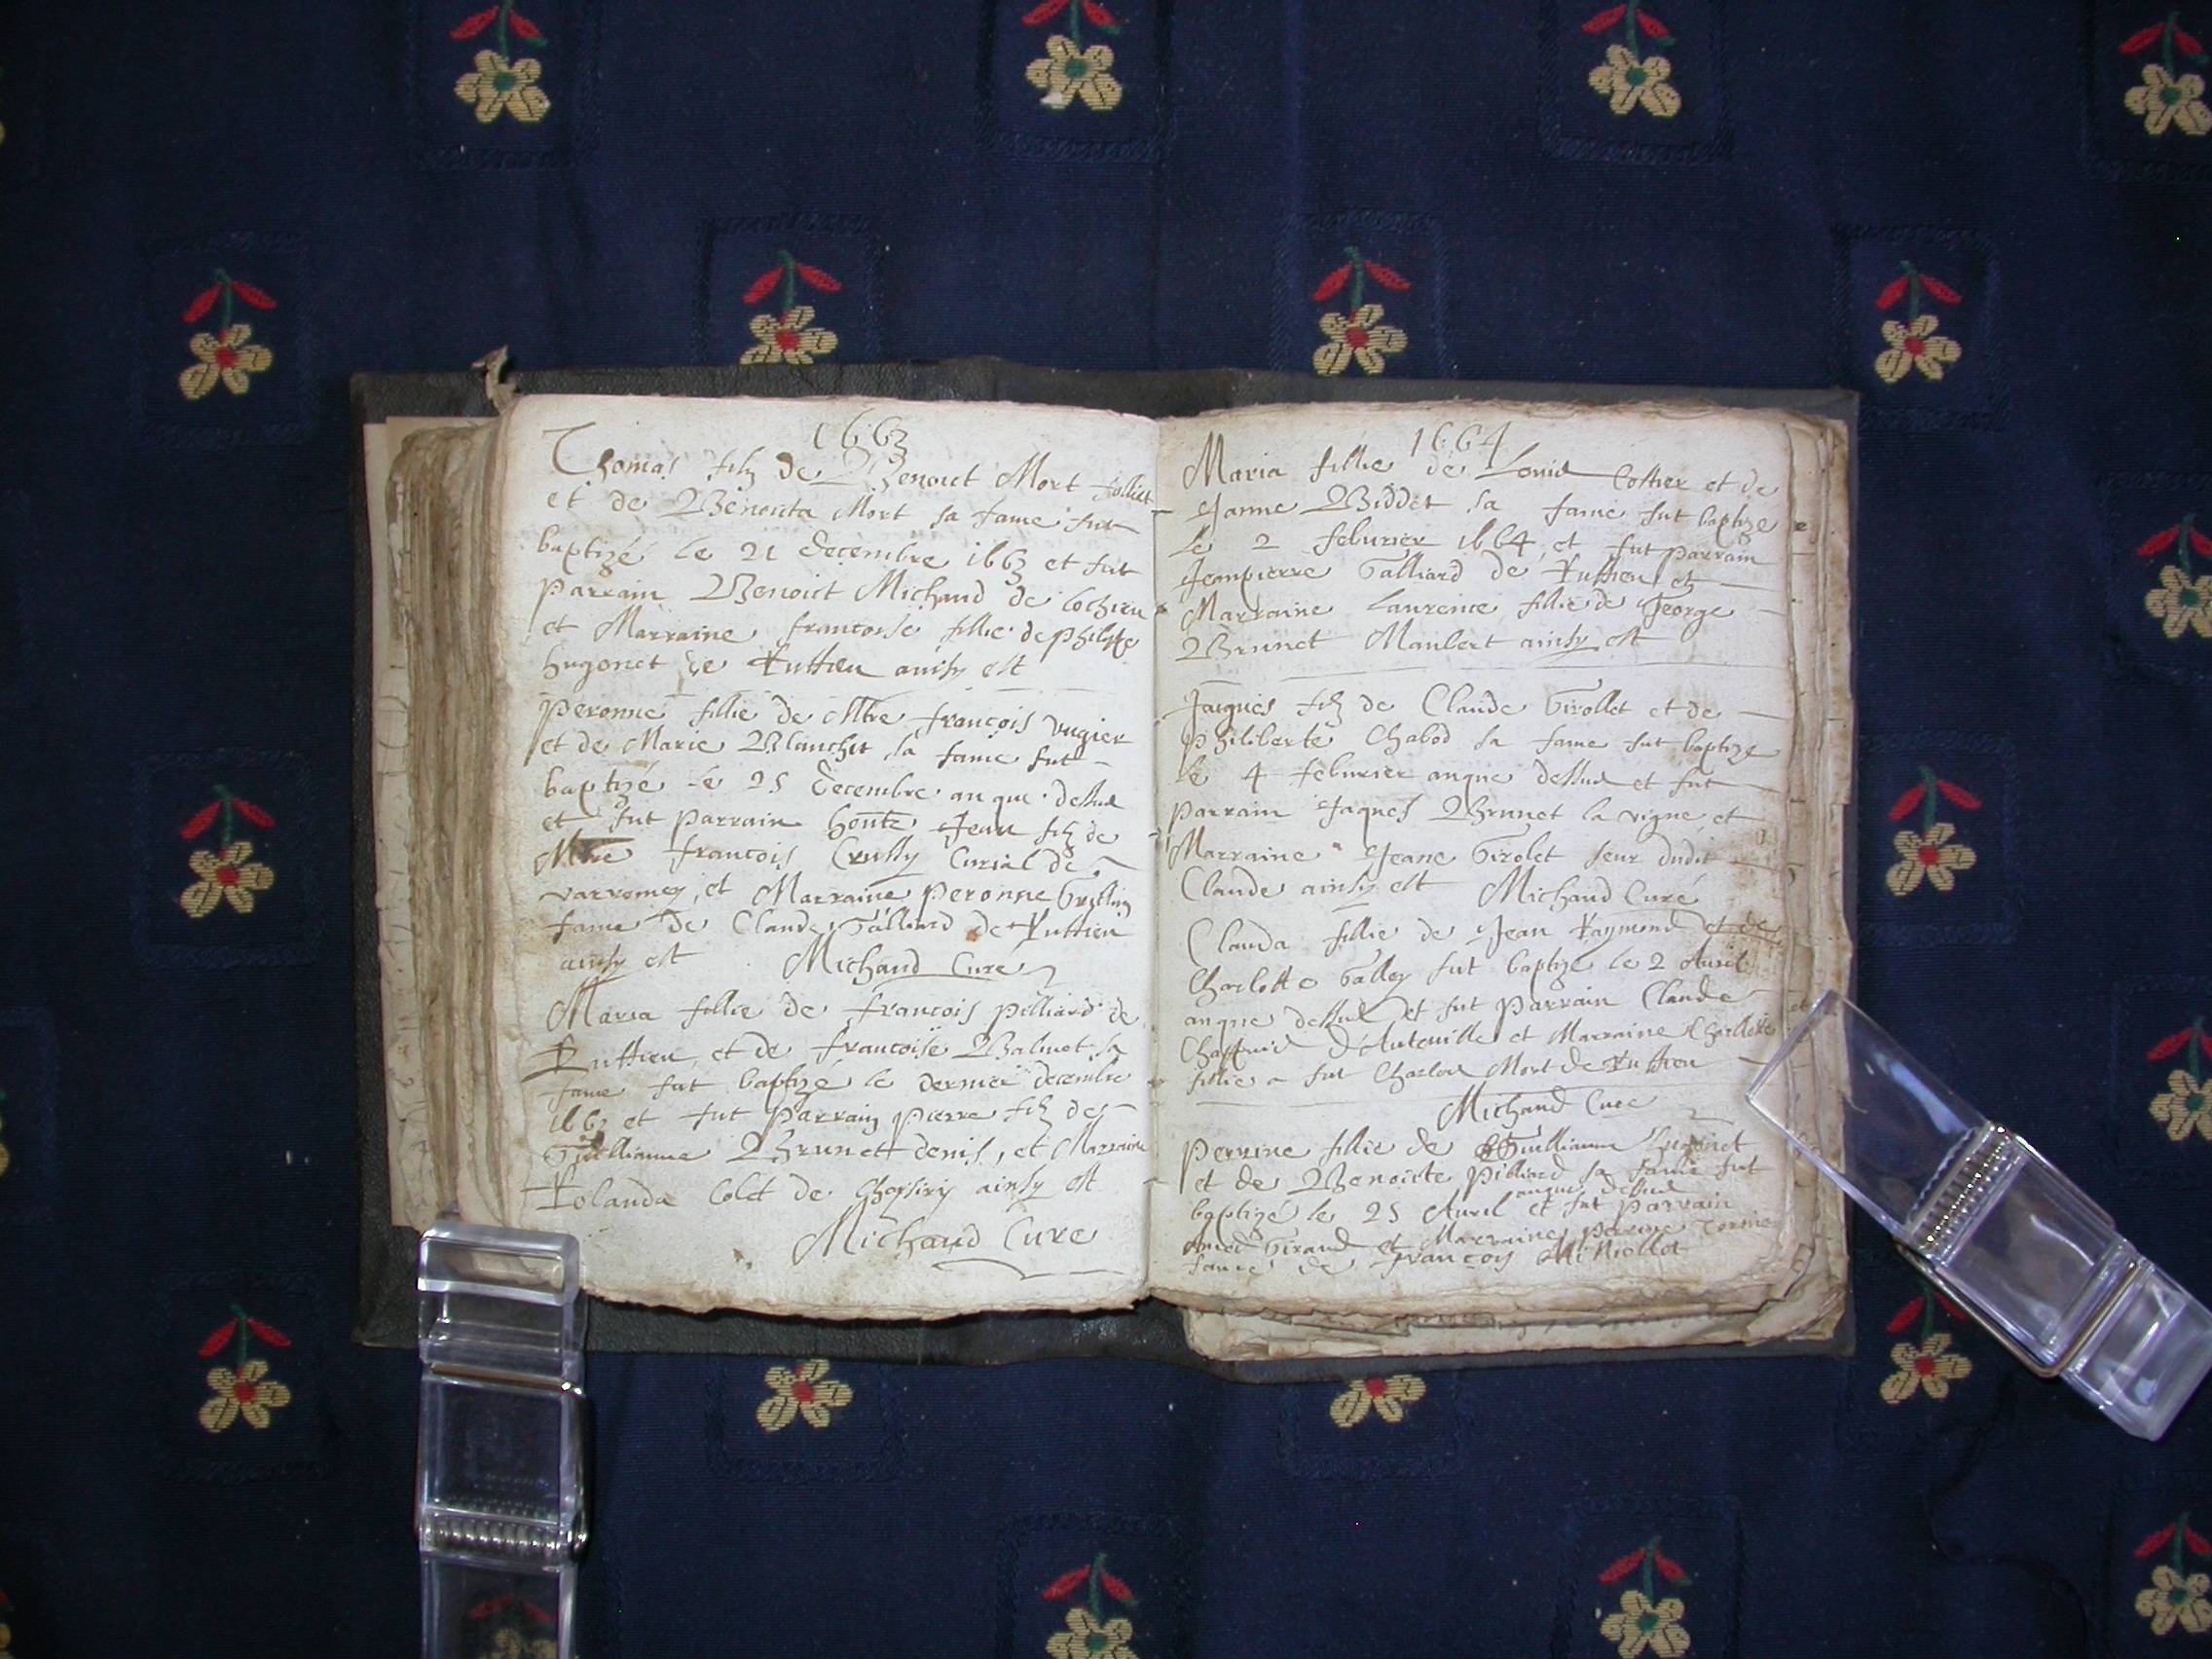 1663
Thomas filz de Benoict Mort folliet
et de Benoicta Mort sa fame fut
baptizé le 21 decembre 1663 et fut
parrain Benoict Michaud de Lochieu
et Marraine francoise fillie de philippe
hugonet de Ruffieu ainsy est
Peronne fillie de Mtre françois vugier
et de Marie Blanchet sa fame fut
baptizé le 25 decembre an que dessus
et fut parrain honte Jean filz de
Mtre francois Crussy Curial de
varromey, et Marraine peronne
fame de Claude Galliard de Ruffieu
ainsy est Michaud Curé
Maria fillie de francois pilliard de
Ruffieu, et de francoise Balmet sa
fame fut baptizé le dernier decembre
1663 et fut parrain pierre filz de
Guillianme Brunet denis, et Marraine
Yolanda Colet de ainsy est
Michaud Cure
1664
Maria fillie de Louis Costier et de
Janne Biddet sa fame fut baptize
le 2 feburier 1664 et fut parrain
Jeanpierre Galliard de Ruffieu et
Marraine Laurence fillie de George
Brunet Maulert ainsy est
Jacques filz de Claude Girollet et de
philiberte Chabod sa fame fut baptize
le 4 feburier anque dessus et fut
parrain Jaques Brunet la vigne et
Marraine Jeane Girolet seur dudit
Claude ainsy est Michaud Curé
Clauda fillie de Jean Raymond et de
Charlotte Galley fut baptizé le 2 Auril
anque dessus et fut parrain Claude
d'Auteuille et Marraine Charlotte
fillie a fut Charles Mort de Ruffieu
Michaud Cure
Perrine fillie de Guillianme hugonet
et de Benoicte pilliard sa fame fut
anque dessus
baptizé le 25 Auril et fut parrain
Amed Giraud et Marraine perrine
fame de françois